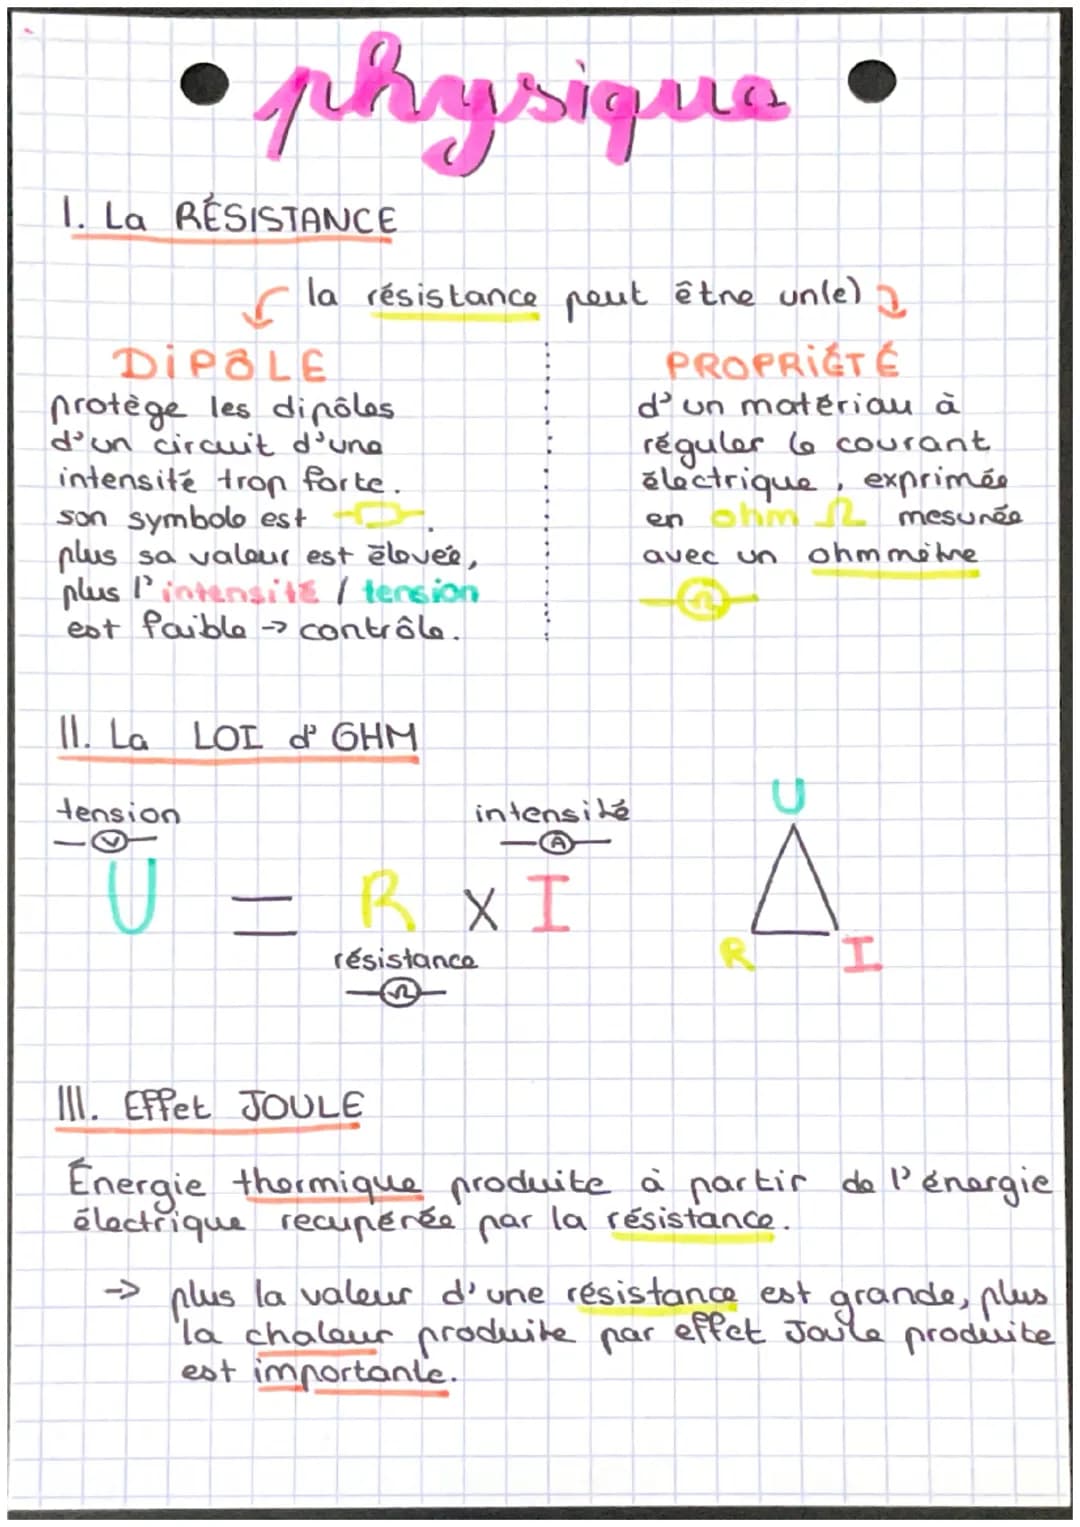 • physique •
I. La RÉSISTANCE
la résistance peut être un(e)
DiPÔLE
protège les dipôles
d'un circuit d'une
intensité trop forte.
son symbole est
plus sa valeur est élevée,
plus l'intensité / tension
est faible → contrôle.
PROPRIÉTÉ
d'un matériau à
réguler le courant
électrique, exprimée
en ohm Ω mesurée
avec un ohmmètre
Ω
II. La LOI d'OHM
tension
V
intensité
A
U = R x I
résistance
Ω
U
R I
III. Effet JOULE
Énergie thermique produite à partir de l'énergie
électrique recupérée par la résistance.
→ plus la valeur d'une résistance est grande, plus
la chaleur produite par effet Joule produite
est importante.